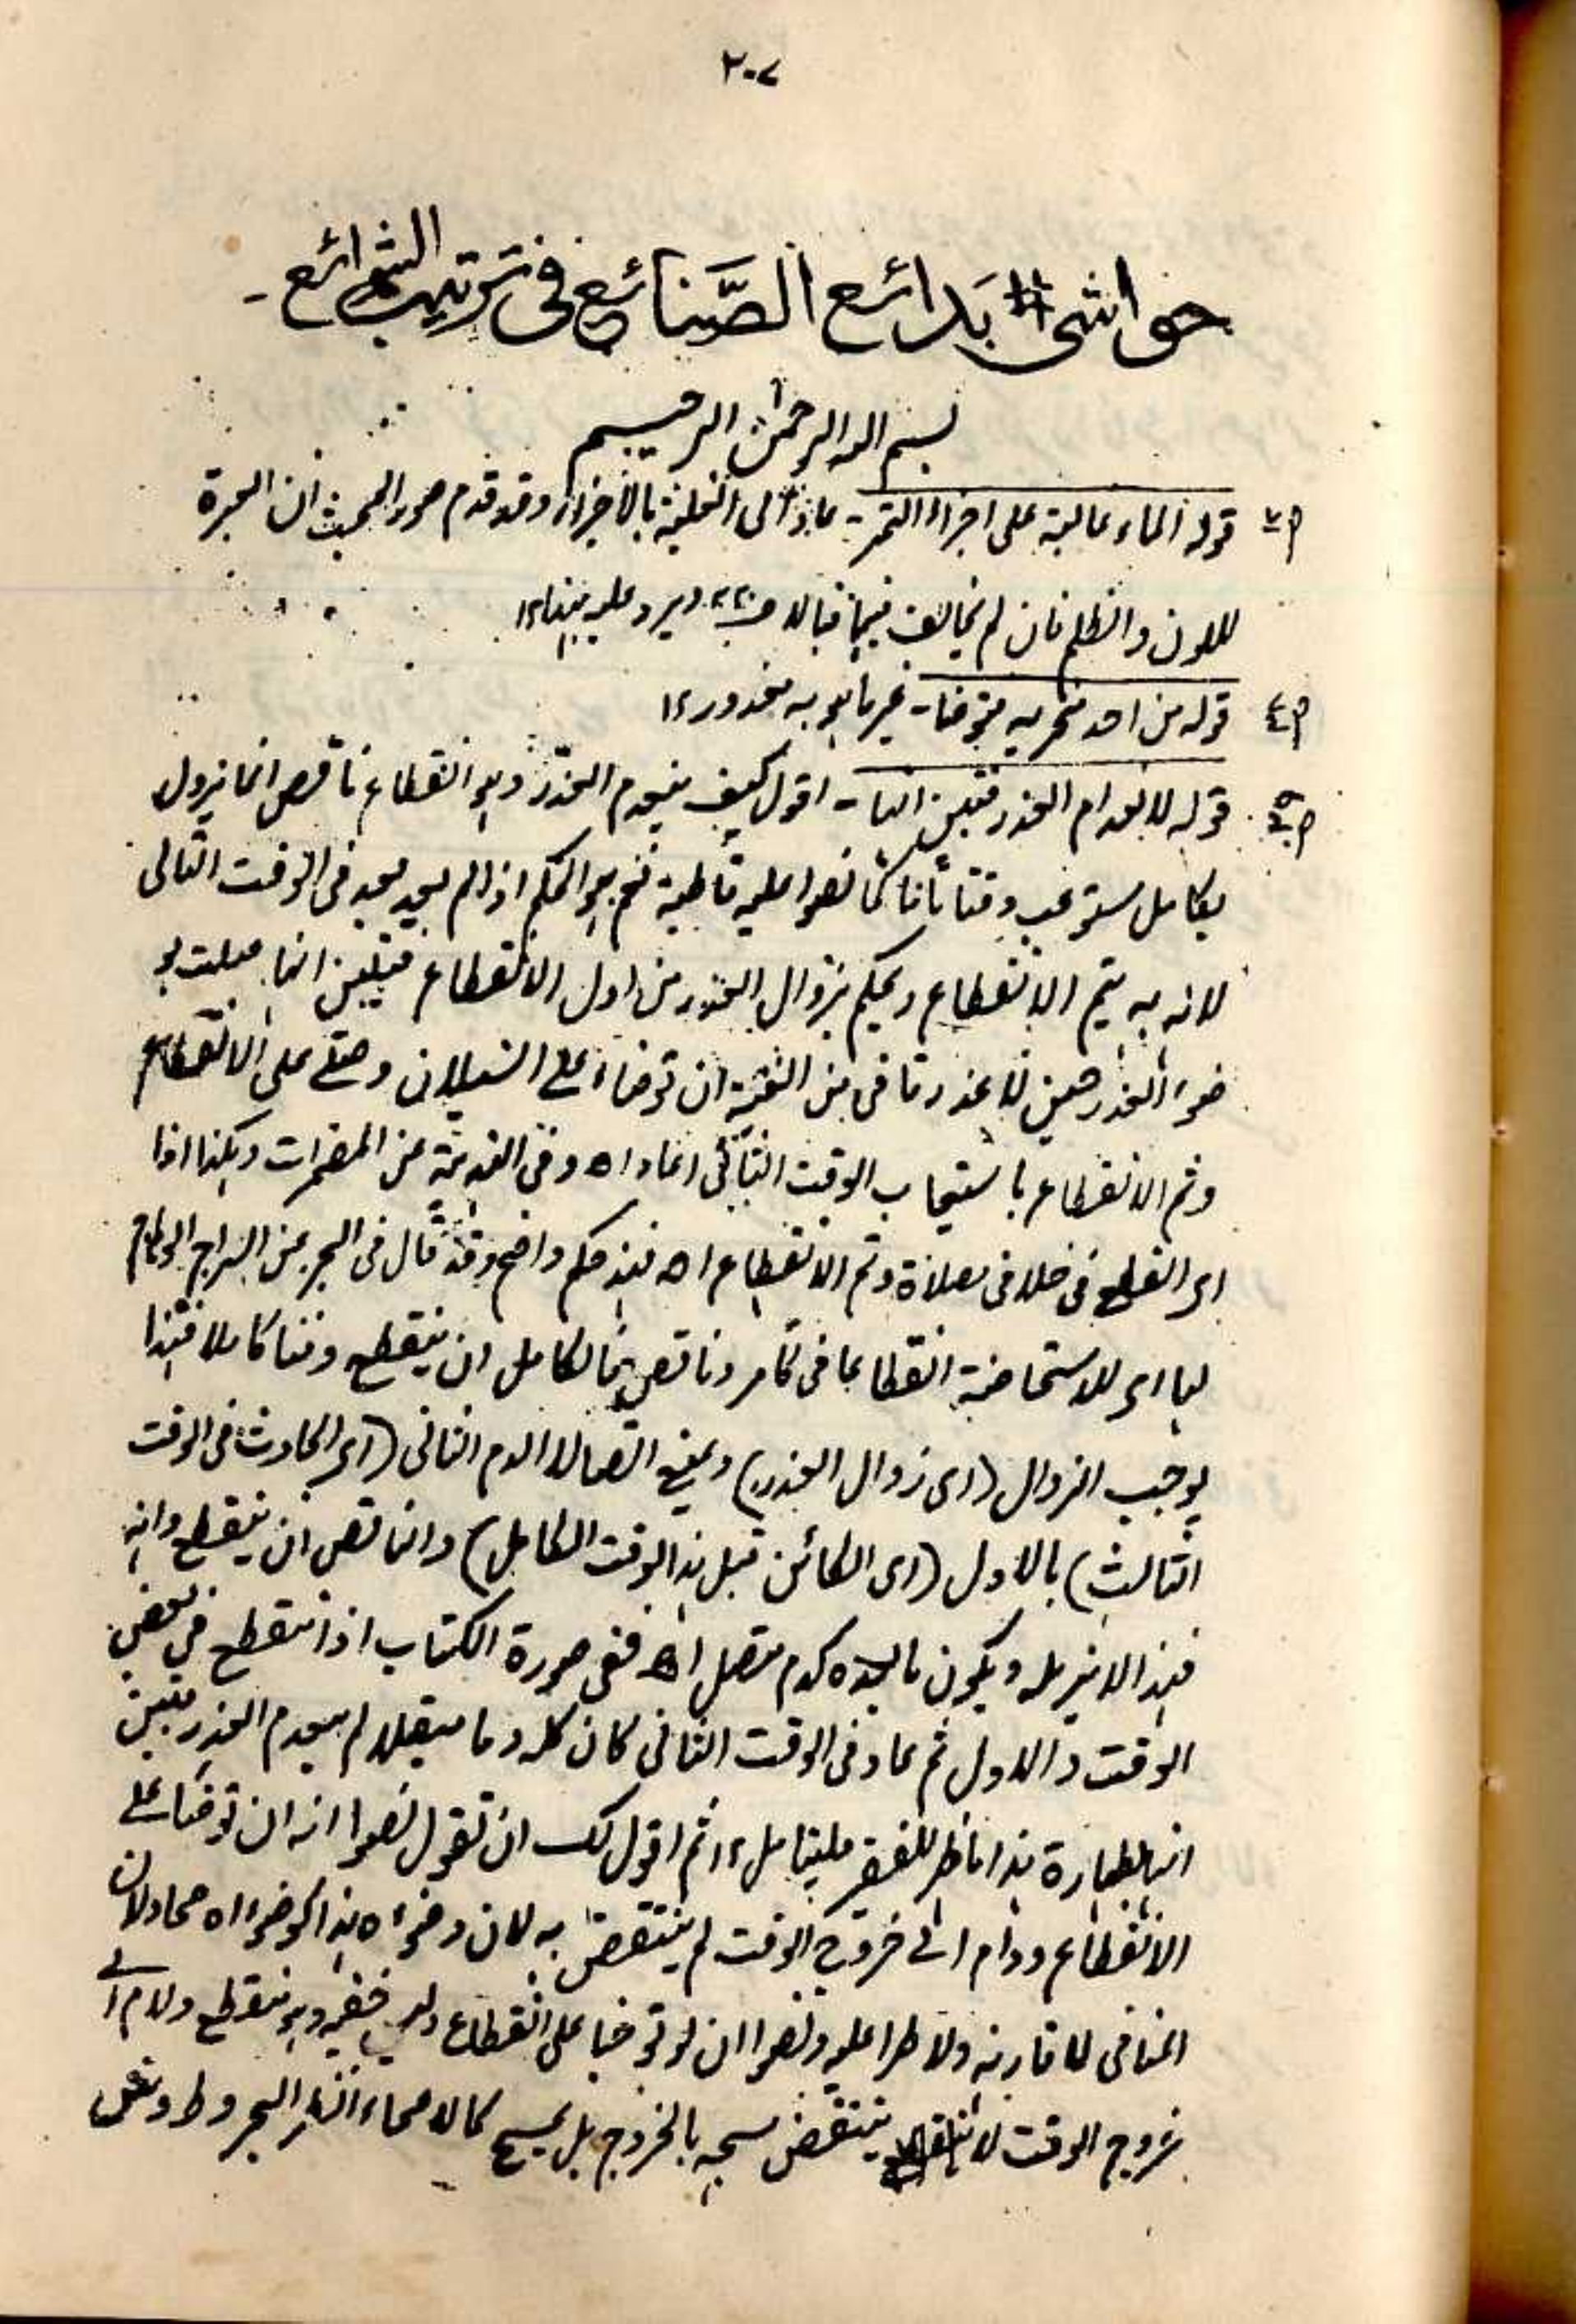 ٢٠٧
حواشى بَدائع الصَّنائع فى ترتيب الشرائع ـ
بسم الله الرحمٰن الرحيم
قوله الماء غالبة على اجزاء التمر ـ عاد الى الغلبة بالاجزاء وقد قدم صدر البحث ان العبرة
لللون والطعم فان لم يخالف فيهما فبالاجزاء ويرد عليه ١٢
قوله من احد منخريه فتوضأ ـ غير ما هو به معذور ١٢
قوله لانعدام العذر فتبين انها ـ اقول كيف ينعدم العذر وهو انقطاع ناقص انما يزول
بكامل يستوعب وقتا تاما كما نصوا عليه قاطبة نعم هو الحكم اذا لم يعد بعد فى الوقت التالى
لانه به يتم الانقطاع ويحكم بزوال العذر من اول الانقطاع فتبين انها صلت بو
ضوء العذر حين لا عذر قا فى من الغنية ان توضأ على السيلان وصلى على الانقطاع
وتم الانقطاع باستيعاب الوقت الثانى اعاد اھ وفى الهندية عن المضمرات وكذا اذا
اى انقطع فى خلال صلاة وتم الانقطاع اھ فهذ حكم واضح وقد قال فى البحر عن السراج الوهاج
لها اى للاستحاضة انقطاعا فى كامر وناقص فالكامل ان ينقطع وقتا كاملا فهذا
يوجب الزوال (اى زوال العذر) ويمنع اتصال الدم الثانى (اى الحادث فى الوقت
الثالث) بالاول (اى الكائن قبل هذا الوقت الكامل) والناقص ان ينقطع دانه
فهذا لا يزيله ويكون ما بعده كدم متصل اھ ففى صورة الكتاب اذا انقطع فى بعض
الوقت د الاول ثم عاد فى الوقت الثانى كان كله دما متصلا لم ينعدم العذر فتبين
انها بطهارة هذا ما ظهر للفقير فليتامل ١٢ ثم اقول لك ان تقول نصوا انه ان توضأ على
الانقطاع ودام الى خروج الوقت لم ينتقض به لان وضوءه هذا كوضوء الاصحاء لان
المنافى لا قارنه ولا طرأ عليه ونصوا ان لو توضأ على انقطاع ولبس خفه وهو منقطع ودام الى
خروج الوقت لا ينتقض مسحه بالخروج بل يمسح كالاصحاء انظر البحر وط وش